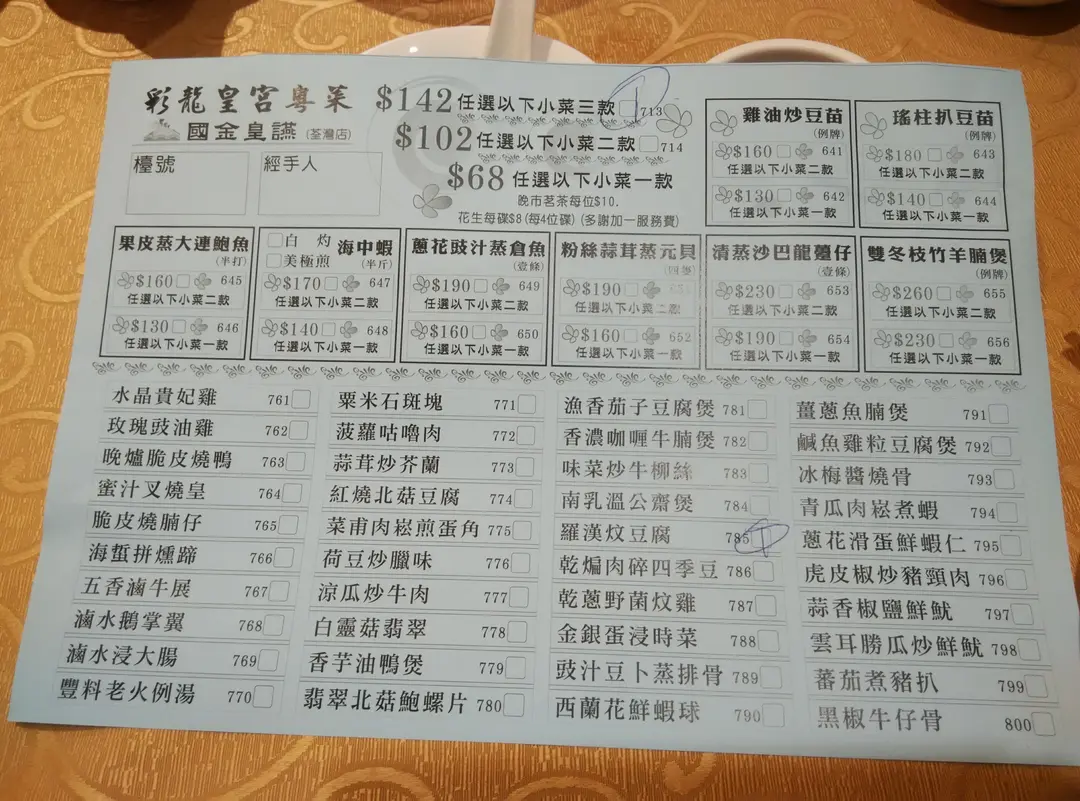 彩龍皇宮粵菜
國金皇讌(荃灣店)
檯號
經手人
$142任選以下小菜三款 713
$102任選以下小菜二款 714
$68任選以下小菜一款
晚市茗茶每位$10.
花生每碟$8(每4位碟)(多謝加一服務費)
雞油炒豆苗
(例牌)
$160 641
任選以下小菜二款
$130 642
任選以下小菜一款
瑤柱扒豆苗
(例牌)
$180 643
任選以下小菜二款
$140 644
任選以下小菜一款
果皮蒸大連鮑魚
(半打)
$160 645
任選以下小菜二款
$130 646
任選以下小菜一款
白灼
美極煎
海中蝦
(半斤)
$170 647
任選以下小菜二款
$140 648
任選以下小菜一款
蔥花豉汁蒸倉魚
(壹條)
$190 649
任選以下小菜二款
$160 650
任選以下小菜一款
粉絲蒜茸蒸元貝
$190
任選以下小菜二款
$160 652
任選以下小菜一款
清蒸沙巴龍躉仔
(壹條)
$230 653
任選以下小菜二款
$190 654
任選以下小菜一款
雙冬枝竹羊腩煲
(例牌)
$260 655
任選以下小菜二款
$230 656
任選以下小菜一款
水晶貴妃雞 761
玫瑰豉油雞 762
晚爐脆皮燒鴨 763
蜜汁叉燒皇 764
脆皮燒腩仔 765
海蜇拼燻蹄 766
五香滷牛展 767
滷水鵝掌翼 768
滷水浸大腸 769
豐料老火例湯 770
粟米石斑塊 771
菠蘿咕嚕肉 772
蒜茸炒芥蘭 773
紅燒北菇豆腐 774
菜甫肉崧煎蛋角 775
荷豆炒臘味 776
涼瓜炒牛肉 777
白靈菇翡翠 778
香芋油鴨煲 779
翡翠北菇鮑螺片 780
漁香茄子豆腐煲 781
香濃咖喱牛腩煲 782
味菜炒牛柳絲 783
南乳溫公齋煲 784
羅漢炆豆腐 785
乾煸肉碎四季豆 786
乾蔥野菌炆雞 787
金銀蛋浸時菜 788
豉汁豆卜蒸排骨 789
西蘭花鮮蝦球 790
薑蔥魚腩煲 791
鹹魚雞粒豆腐煲 792
冰梅醬燒骨 793
青瓜肉崧煮蝦 794
蔥花滑蛋鮮蝦仁 795
虎皮椒炒豬頸肉 796
蒜香椒鹽鮮魷 797
雲耳勝瓜炒鮮魷 798
蕃茄煮豬扒 799
黑椒牛仔骨 800